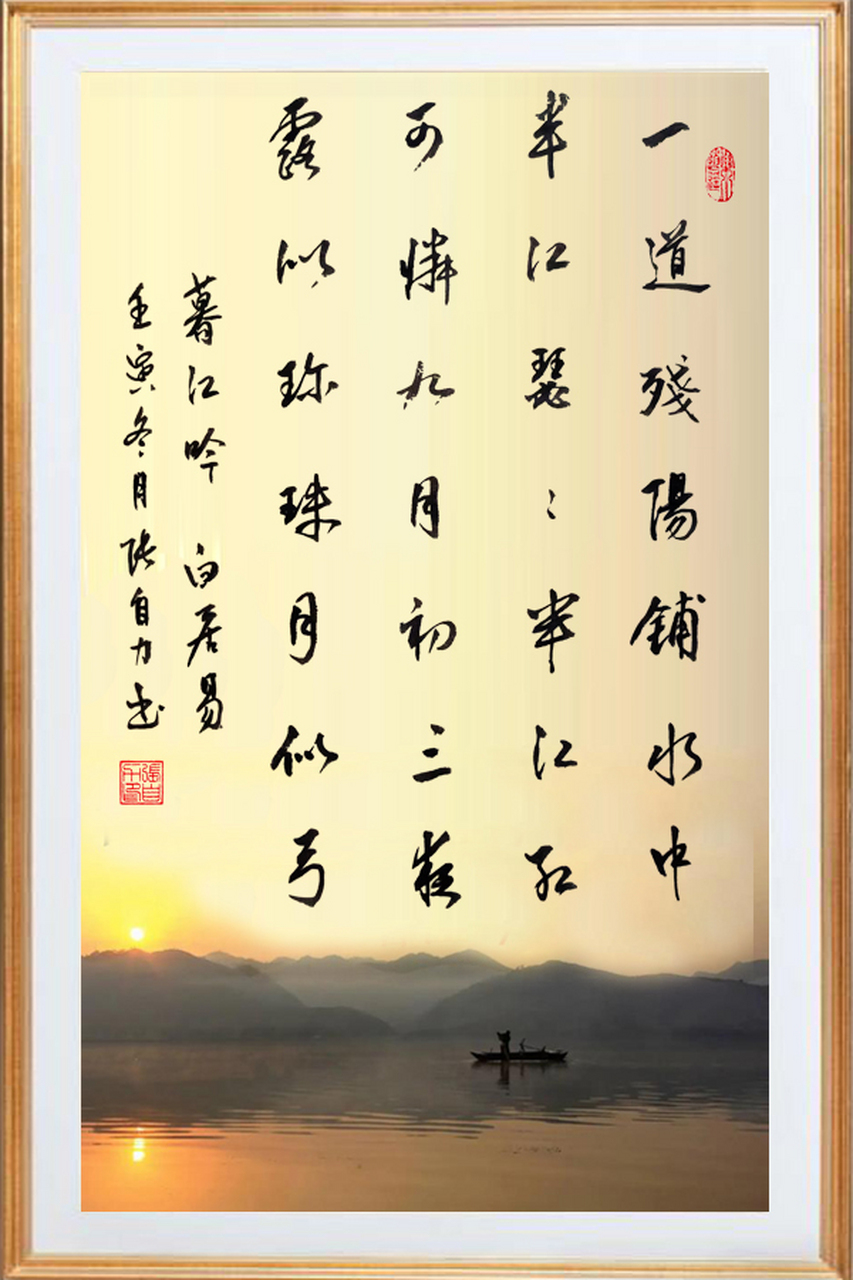 一道殘陽鋪水中
半江瑟〻半江紅
可憐九月初三夜
露似珍珠月似弓
暮江吟 白居易
壬寅冬月張自力書